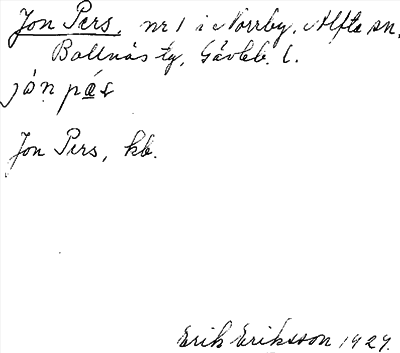 Jon Pers, nr 1 i Norrby, Alfta sn,
Bollnäs tg, Gävleb. l.
jón pás
Jon Pers, kb.
Erik Eriksson 1929.